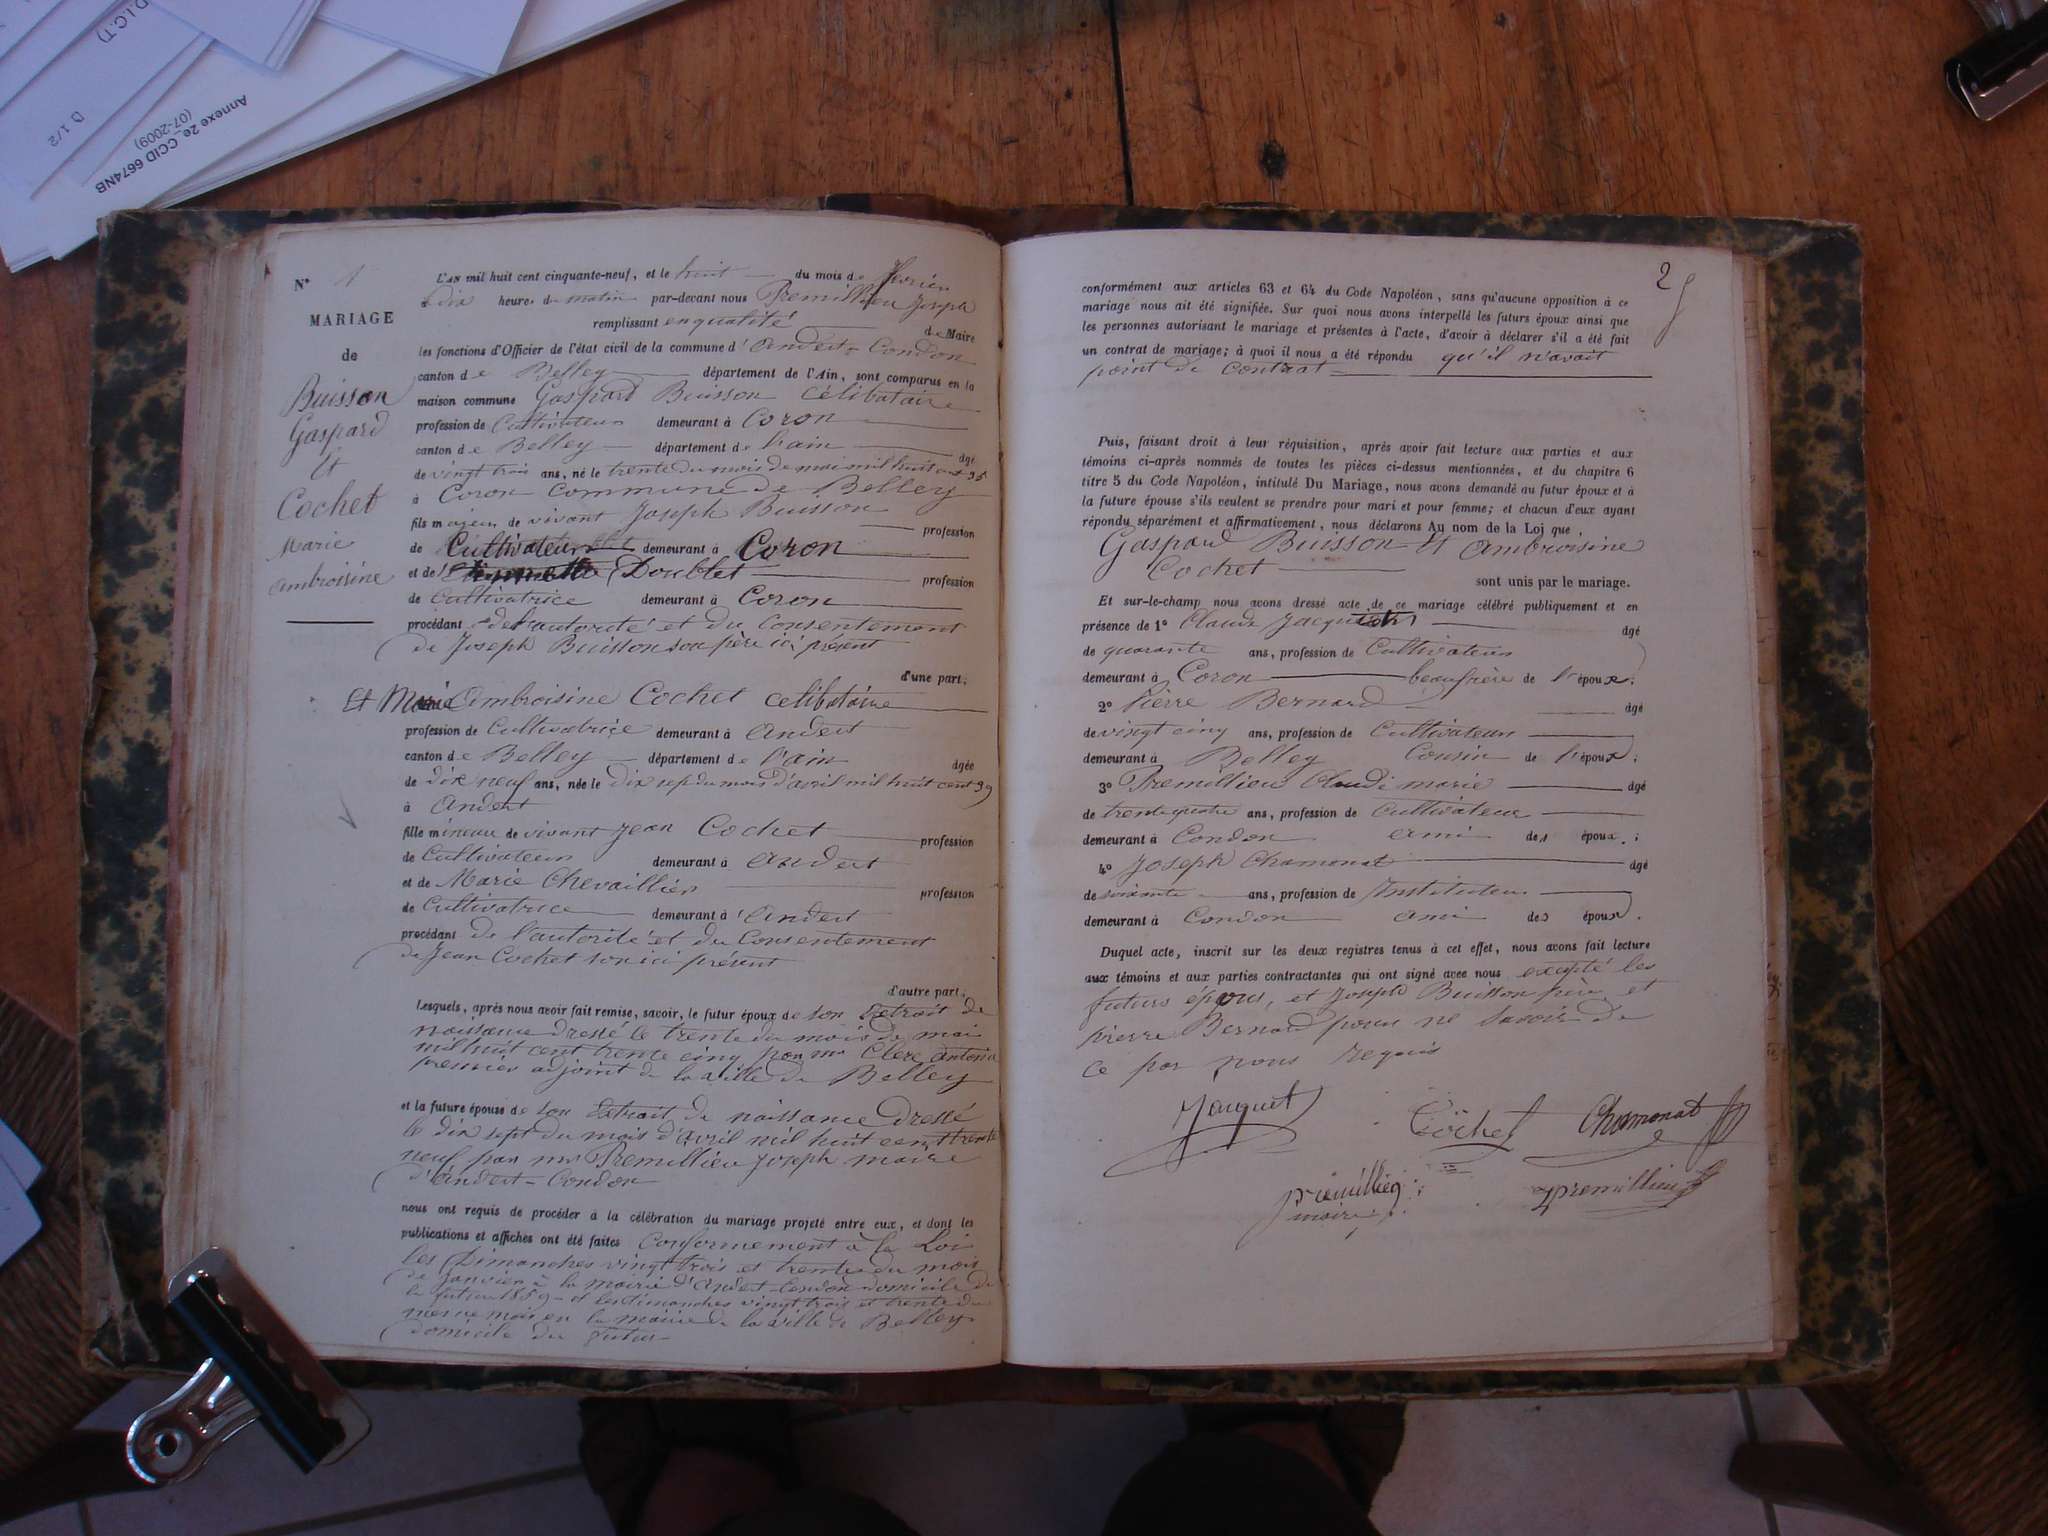 D.I.C.T)
D 1/2
Annexe 2e_CCID 6674NB
(07-2009)
N° 1
MARIAGE
de
Buisson
Gaspard
Et
Cochet
Marie
ambroisine
L'AN mil huit cent cinquante-neuf, et le huit du mois de fevrier
à dix heures du matin par-devant nous Premillieu Joseph
remplissant en qualité de Maire
les fonctions d'Officier de l'état civil de la commune d'Andert-Condon
canton de Belley département de l'Ain, sont comparus en la
maison commune Gaspard Buisson célibataire
profession de Cultivateur demeurant à Coron
canton de Belley département de l'ain âgé
de vingt trois ans, né le trente du mois de mai mil huit cent 35
à Coron Commune de Belley
fils majeur de vivant Joseph Buisson profession
de Cultivateur demeurant à Coron
et de Doublet profession
de Cultivatrice demeurant à Coron
procédant de l'autorité et du Consentement
de Joseph Buisson son père ici présent
d'une part.
Et Marie Ambroisine Cochet celibataire
profession de Cultivatrice demeurant à Andert
canton de Belley département de l'ain âgée
de dix neuf ans, née le dix sept du mois d'avril mil huit cent 39
à Andert
fille mineure de vivant Jean Cochet profession
de Cultivateur demeurant à Andert
et de Marie Chevaillier profession
de Cultivatrice demeurant à Andert
procédant de l'autorité et du Consentement
de Jean Cochet son ici présent
d'autre part.
Lesquels, après nous avoir fait remise, savoir, le futur époux de son Extrait de
naissance dressé le trente du mois de mai
mil huit cent trente cinq par mr Clerc Antoine
premier adjoint de la ville de Belley
et la future épouse de son Extrait de naissance Dressé
le dix sept du mois d'avril mil huit cent trente
neuf par mr Premillieu Joseph maire
d'Andert-Condon
nous ont requis de procéder à la célébration du mariage projeté entre eux, et dont les
publications et affiches ont été faites Conformement à la Loi
les Dimanches vingt trois et trente du mois
de Janvier à la mairie d'Andert-Condon domicile de
la future 1859 et les dimanches vingt trois et trente du
meme mois en la mairie de la ville de Belley
domicile du futur
2
conformément aux articles 63 et 64 du Code Napoléon, sans qu'aucune opposition à ce
mariage nous ait été signifiée. Sur quoi nous avons interpellé les futurs époux ainsi que
les personnes autorisant le mariage et présentes à l'acte, d'avoir à déclarer s'il a été fait
un contrat de mariage; à quoi il nous a été répondu qu'il n'avait
point de Contrat
Puis, faisant droit à leur réquisition, après avoir fait lecture aux parties et aux
témoins ci-après nommés de toutes les pièces ci-dessus mentionnées, et du chapitre 6
titre 5 du Code Napoléon, intitulé Du Mariage, nous avons demandé au futur époux et à
la future épouse s'ils veulent se prendre pour mari et pour femme; et chacun d'eux ayant
répondu séparément et affirmativement, nous déclarons Au nom de la Loi que
Gaspard Buisson Et Ambroisine
Cochet sont unis par le mariage.
Et sur-le-champ nous avons dressé acte de ce mariage célébré publiquement et en
présence de 1° Claude Jacquet âgé
de quarante ans, profession de Cultivateur
demeurant à Coron beaufrère de l'époux;
2° Pierre Bernard âgé
de vingt cinq ans, profession de Cultivateur
demeurant à Belley Cousin de l'époux;
3° Premillieu Claude marie âgé
de trente quatre ans, profession de Cultivateur
demeurant à Condon ami des époux;
4° Joseph Chamonat âgé
de soixante ans, profession de Instituteur
demeurant à Condon ami des époux.
Duquel acte, inscrit sur les deux registres tenus à cet effet, nous avons fait lecture
aux témoins et aux parties contractantes qui ont signé avec nous excepté les
futurs époux, et Joseph Buisson père et
pierre Bernard pour ne savoir de
ce par nous requis
Jacquet
Cochet
Chamonat
premillieu
maire
premillieu